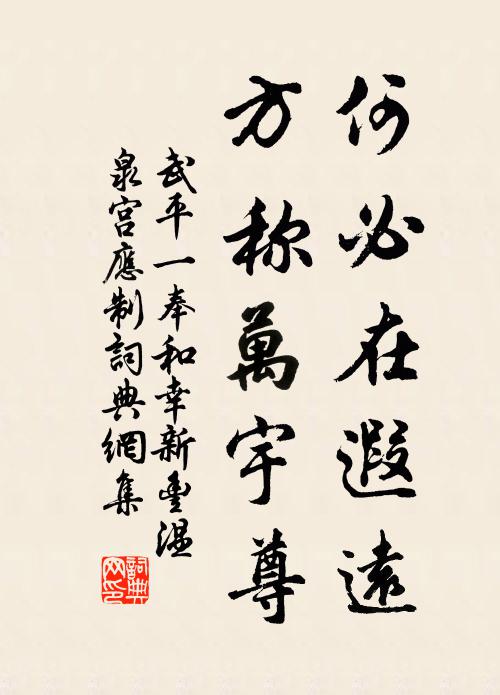 何必在遐遠
方称萬宇尊
武平一奉和幸新豐溫
泉宮應制詞典網集
詞典
网印